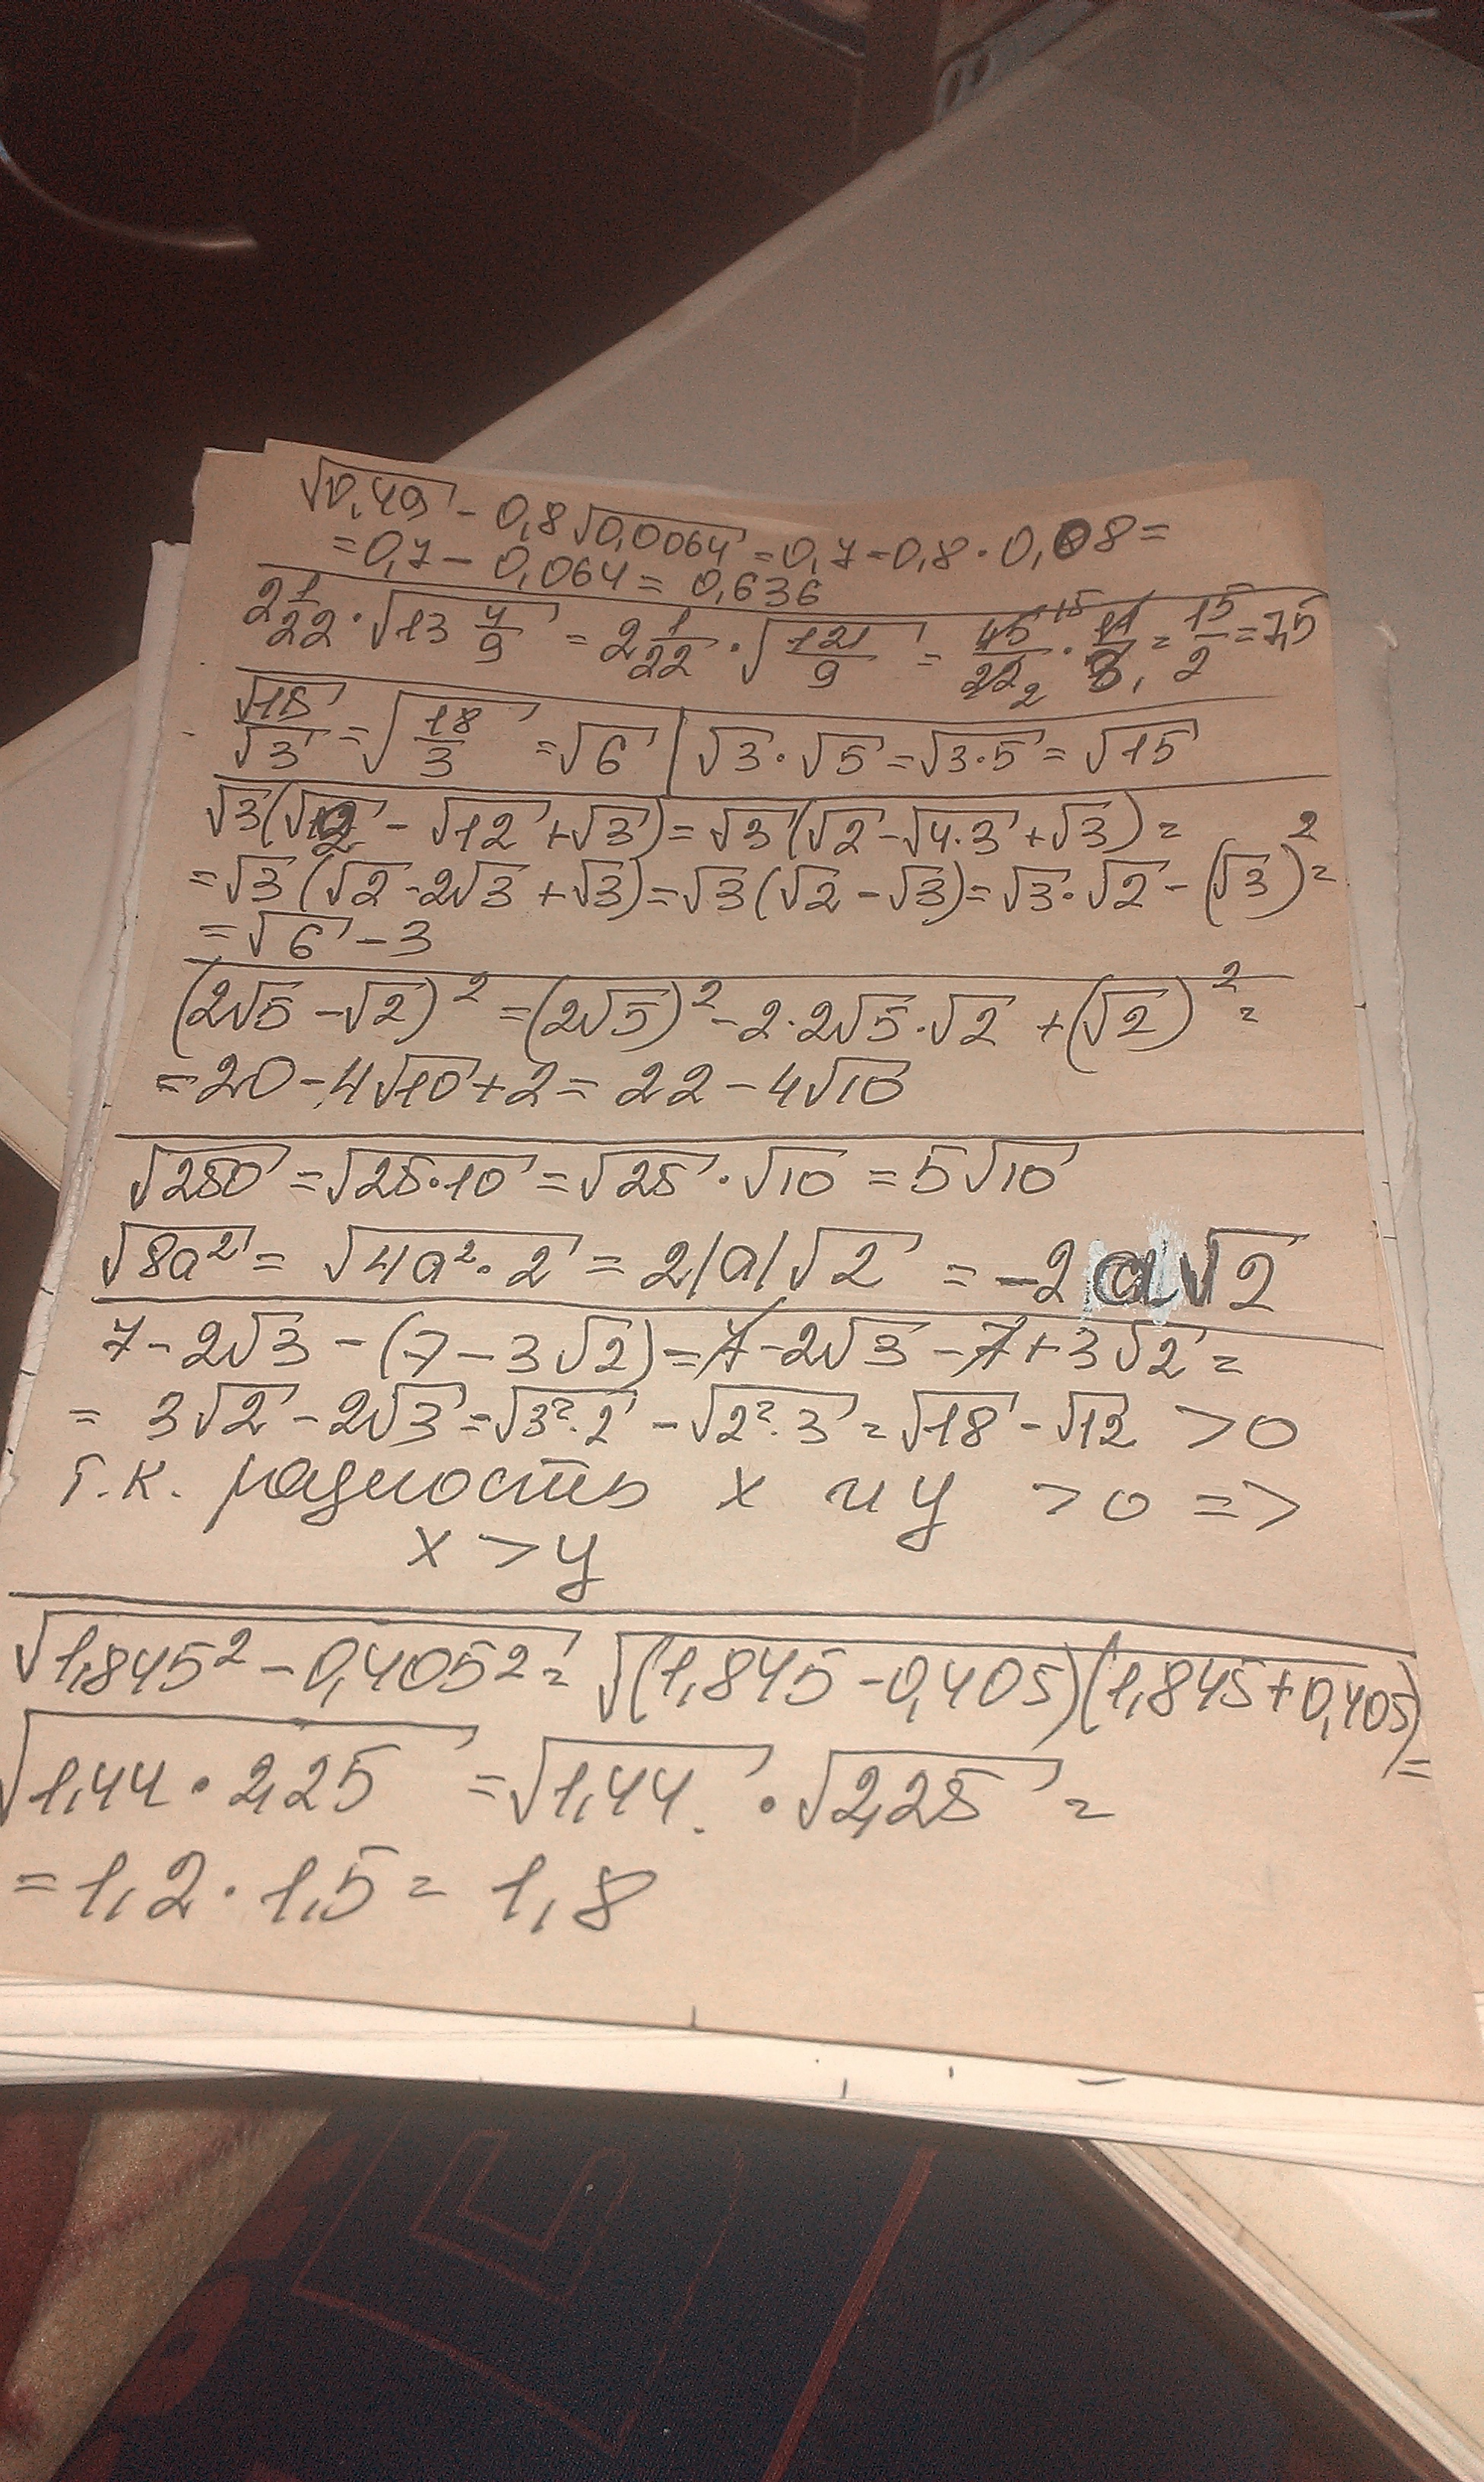 √0,49 - 0,8√0,0064 = 0,7 - 0,8 · 0,08 =
= 0,7 - 0,064 = 0,636
2 1/22 · √(13 4/9) = 2 1/22 · √(121/9) = 45/22 15 2 · 11/3 1 = 15/2 = 7,5
√18/√3 = √(18/3) = √6 | √3 · √5 = √(3·5) = √15
√3(√2 - √12 + √3) = √3(√2 - √(4·3) + √3) =
= √3(√2 - 2√3 + √3) = √3(√2 - √3) = √3·√2 - (√3)² =
= √6 - 3
(2√5 - √2)² = (2√5)² - 2·2√5·√2 + (√2)² =
= 20 - 4√10 + 2 = 22 - 4√10
√250 = √(25·10) = √25 · √10 = 5√10
√(8a²) = √(4a²·2) = 2|a|√2 = -2a√2
7 - 2√3 - (7 - 3√2) = 7 - 2√3 - 7 + 3√2 =
= 3√2 - 2√3 = √(3²·2) - √(2²·3) = √18 - √12 > 0
т.к. разность x и y > 0 =>
x > y
√(1,845² - 0,405²) = √((1,845 - 0,405)(1,845 + 0,405)) =
√(1,44 · 2,25) = √1,44 · √2,25 =
= 1,2 · 1,5 = 1,8